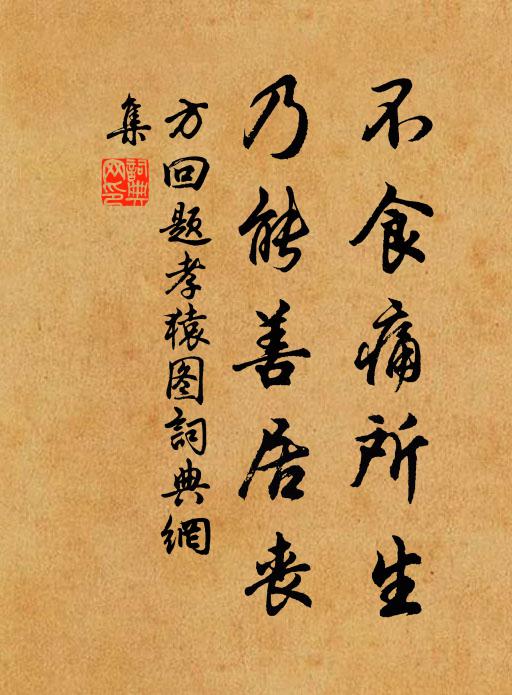 不食痛所生
乃能善居丧
方回题孝猿图詞典網
集
詞典網印